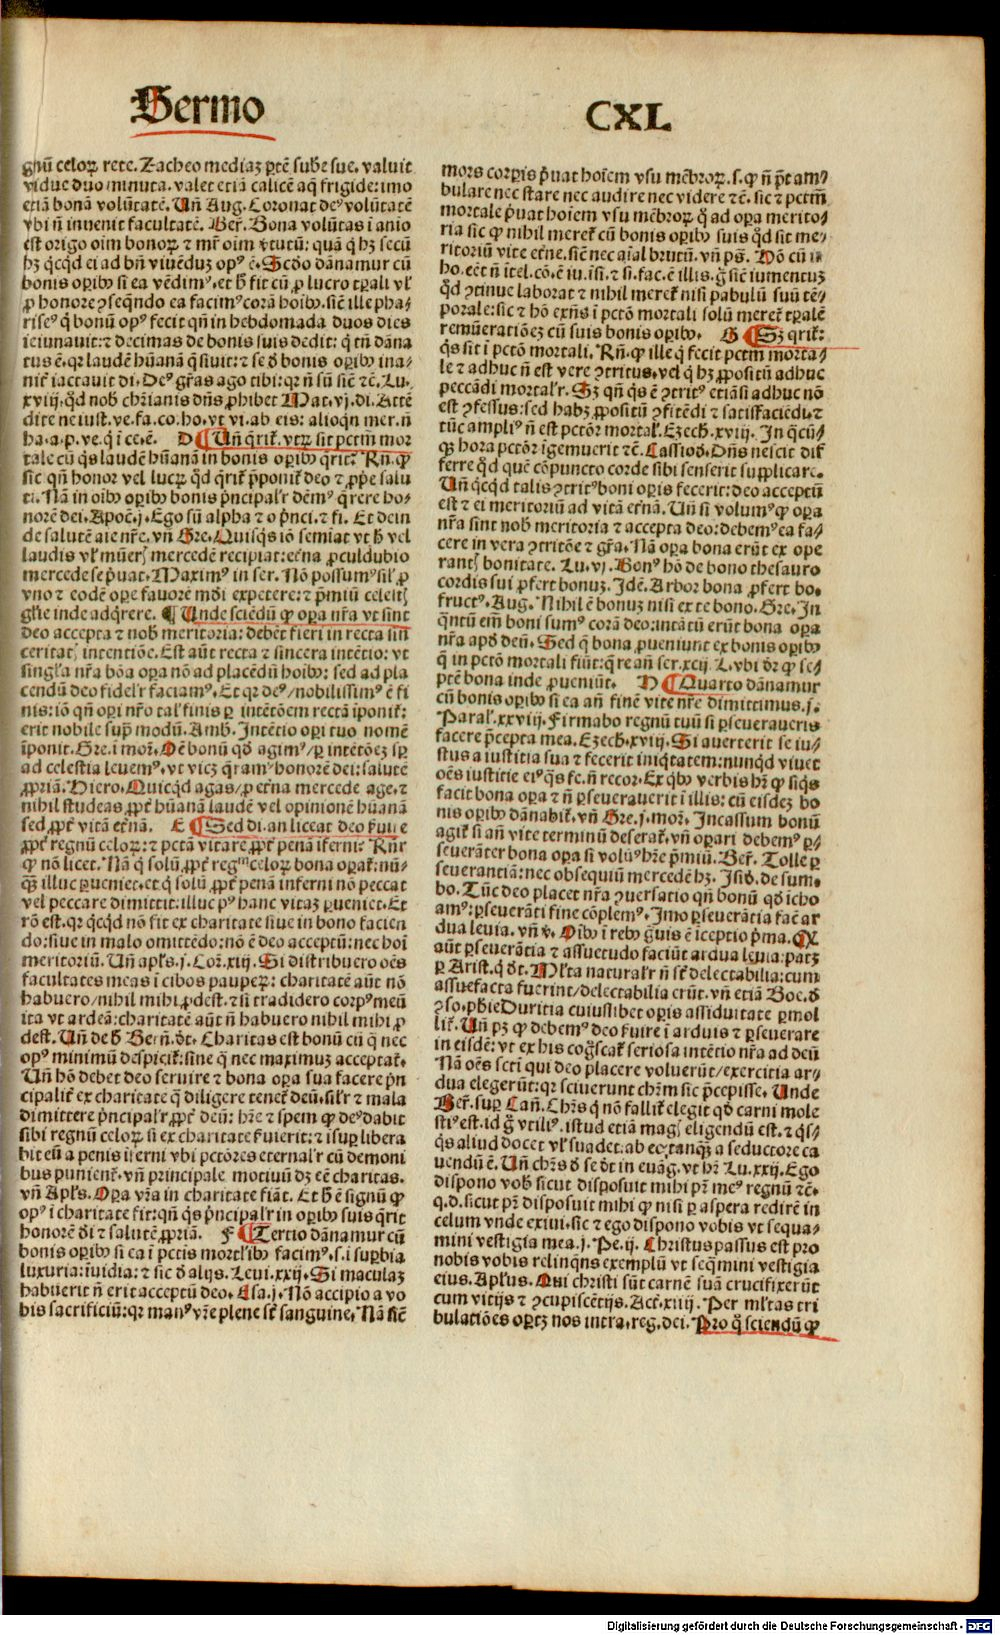 Sermo
CXL
gnū celoꝝ rete. Zacheo mediaꝫ ꝑtē sube sue. valuit
vidue duo minuta. valet etiā calicē aq̄ frigide: imo
etiā bonā volūtatē. Uñ Aug. Coronat deꝰ volūtatē
vbi ñ invenit facultatē. Ber̃. Bona volūtas ī anio
est origo oim bonoꝝ ⁊ mr̃ oim ꝟtutū: quā q̇ hꝫ secū
hꝫ q̇cq̇d ei ad bñ viuēduꝫ opꝰ ē. Scd̓o dānamur cū
bonis oꝑibꝰ si ea vēdimꝰ. et h̓ fit cū ꝓ lucro tꝑali vl̓
ꝓ honore ꝯseq̄ndo ea facimꝰ corā hoībꝰ. sic̄ ille pha-
riseꝰ q̇ bonū opꝰ fecit qñ in hebdomada duos dies
ieiunauit: ⁊ decimas de bonis suis dedit: q̇ tñ dāna
tus ē. qꝛ laudē hūanā q̄siuit: ⁊ se d̓ bonis oꝑibꝰ ina-
nit̓ iactauit di. Deꝰ gr̃as ago tibi: qꝛ ñ sū sic̄ ⁊c̄. Lu.
xviij. qd̓ nob̓ chr̃ianis dñs ꝓhibet Mat. vj. di. Attē
dite ne iust. ve. fa. co. ho. vt vi. ab eis: alioqn mer. ñ
ha. a. p. ve. q̇ ī ce. ē. D Uñ q̄rit̓. vtꝝ sit pctm̄ mor
tale cū q̇s laudē hūanā in bonis oꝑibꝰ q̄rit? Rñ. ꝙ
sic qñ honor vel lucꝝ qd̓ q̄rit̓ p̄ponit̓ deo ⁊ ꝓp̄e salu
ti. Nā in oībꝰ oꝑibꝰ bonis p̄ncipal̓r dēmꝰ q̄rere ho-
norē dei. Apoc̄. j. Ego sū alpha ⁊ o p̄nci. ⁊ fi. Et dein
de salutē aīe nr̃e. vñ Gre. Quisq̇s iō semiat vt h̓ vel
laudis vl̓ mūerꝭ mercedē recipiat: et̓na ꝓculdubio
mercede se p̄uat. Maximꝰ in ser. Nō possumꝰ sil̓ ꝓ
vno ⁊ eodē oꝑe fauorē mūdi expetere: ⁊ p̄miū celestꝭ
gl̓ie inde adq̇rere. ¶ Unde sciēdū ꝙ oꝑa nr̃a vt sint
deo accepta ⁊ nob̓ meritoria: debēt fieri in recta sin
ceritatꝭ intentiōe. Est aūt recta ⁊ sincera intētio: vt
singl̓a nr̃a bōa oꝑa nō ad placēdū hoībꝰ: sed ad pla
cendū deo fidel̓r faciamꝰ. Et qꝛ deꝰ nobilissimꝰ ē fi
nis: iō qñ oꝑi nr̃o tal̓ finis ꝑ intētōem rectā īponit̓:
erit nobile sup̄ modū. Amb. Intētio oꝑi tuo nomē
īponit. Gre. ī mor̃. Om̄e bonū qd̓ agimꝰ ꝑ intētōeꝫ sꝑ
ad celestia leuemꝰ. vt vicꝫ q̄ramꝰ honorē dei: salutē
ꝓpriā. Hiero. Quicq̇d agas ꝓ et̓na mercede age. ⁊
nihil studeas ꝓpt̓ hūanā laudē vel opinionē hūanā
sed ꝓpt̓ vitā et̓nā. E Sed di. an liceat deo ẜuire
ꝓpt̓ regnū celoꝝ: ⁊ pctā vitare ꝓpt̓ penā īferni: Rñr
ꝙ nō licet. Nā q̇ solū ꝓpt̓ regm celoꝝ bona oꝑat̓: nū-
q̄ꝫ illuc ꝑueniet. et q̇ solū ꝓpt̓ penā inferni nō peccat
vel peccare dimittit: illuc pꝰ hanc vitaꝫ ꝑueniet. Et
rō est. qꝛ q̇cq̇d nō fit ex charitate siue in bono facien
do: siue in malo omittēdo: nō ē deo acceptū: nec hoī
meritoriū. Uñ apl̓s. j. Cor̃. xiij. Si distribuero oēs
facultates meas ī cibos pauperꝝ: charitatē aūt nō
habuero nihil mihi ꝓdest. ⁊ si tradidero corpꝰ meū
ita vt ardeā: charitatē aūt ñ habuero nihil mihi ꝓ
dest. Uñ de h̓ Bern̄. dt̓. Charitas est bonū cū q̇ nec
opꝰ minimū despicit̓: sine q̇ nec maximuꝫ acceptat̓.
Uñ hō debet deo seruire ⁊ bona oꝑa sua facere p̄n
cipalit̓ ex charitate q̇ diligere tenet̓ deū. sil̓r ⁊ mala
dimittere p̄ncipal̓r ꝓpt̓ deū: hr̃e ⁊ spem ꝙ deꝰ dabit
sibi regnū celoꝝ si ex charitate ẜuierit: ⁊ isuꝑ libera
bit eū a penis iferni vbi pctōres eternal̓r cū demoni
bus punient̓. vñ principale motiuū dꝫ eē charitas.
vñ Apl̓s. Oꝑa vr̃a in charitate fiāt. Et h̓ ē signū ꝙ
opꝰ ī charitate fit: qñ q̇s p̄ncipal̓r in oꝑibꝰ suis q̄rit
honorē dī ⁊ salutē ꝓpriā. F Tertio dānamur cū
bonis oꝑibꝰ si ea ī pctis mortl̓ibꝰ facimꝰ. s. ī suꝑbia
luxuria: īuidia: ⁊ sic d̓ alijs. Leui. xxij. Si maculaꝫ
habuerit ñ erit acceptū deo. Esa. j. Nō accipio a vo
bis sacrificiū: qꝛ manꝰ vr̃e plene st̓ sanguine. Nā sic̄
mors corꝑis p̄uat hoīem vsu mēbroꝝ. s. ꝙ ñ p̄t am-
bulare nec stare nec audire nec videre ⁊c̄. sic ⁊ pctm̄
mortale p̄uat hoīem vsu mēbroꝝ q̇ ad oꝑa merito-
ria sic ꝙ nihil meret̓ cū bonis oꝑibꝰ suis qd̓ sit me-
ritoriū vite et̓ne. sic̄ nec aīal brutū. vñ ps̄. Hō cū in
ho. eēt ñ itel. cō. ē iu. īsi. ⁊ si. fac. ē illis. g̊ sic̄ iumentuꝫ
qd̓ ꝯtinue laborat ⁊ nihil meret̓ nisi pabulū suū tē-
porale: sic ⁊ hō exñs ī pctō mortali solū meret̓ tꝑalē
remūeratiōeꝫ cū suis bonis oꝑibꝰ. G Sꝫ qrit̓:
q̇s sit ī pctō mortali. Rñ. ꝙ ille q̇ fecit pctm̄ morta-
le ⁊ adhuc ñ est vere ꝯtritus. vel q̇ hꝫ ꝓpositū adhuc
peccādi mortal̓r. Sꝫ qñ q̇s ē ꝯtritꝰ etiāsi adhuc nō
est ꝯfessus: sed habꝫ ꝓpositū ꝯfitēdi ⁊ satisfaciēdi. ⁊
tūc ampliꝰ ñ est pctōr mortal̓. Ezech. xviij. In q̄cū-
q̄ꝫ hora pctōr īgemuerit ⁊c̄. Cassiod̓. Dñs nescit dif
ferre qd̓ quē cōpuncto corde sibi senserit supplicare.
Uñ q̇cq̇d talis ꝯtritꝰ boni oꝑis fecerit: deo acceptū
est ⁊ ei meritoriū ad vitā et̓nā. Uñ si volumꝰ ꝙ oꝑa
nr̃a sint nob̓ meritoria ⁊ accepta deo: debemꝰ ea fa-
cere in vera ꝯtritōe ⁊ gr̃a. Nā oꝑa bona erūt ex ope
rantꝭ bonitate. Lu. vj. Bonꝰ hō de bono thesauro
cordis sui ꝓfert bonuꝫ. Idē. Arbor bona ꝓfert bo.
fructꝰ. Aug. Nihil ē bonuꝫ nisi ex te bono. Gre. In
q̇ntū em̄ boni sumꝰ corā deo: intātū erūt bona oꝑa
nr̃a apd̓ deū. Sed q̇ bona ꝓueniunt ex bonis oꝑibꝰ
q̇ in pctō mortali fiūt: q̄re añ ser. xcij. L. vbi dr̃ ꝙ se-
ptē bona inde ꝓueniūt. H Quarto dānamur
cū bonis oꝑibꝰ si ea añ finē vite nr̃e dimittimus. j.
Paral̓. xxviij. Firmabo regnū tuū si ꝑseueraueris
facere p̄cepta mea. Ezech. xviij. Si averterit se iu-
stus a iustitia sua ⁊ fecerit iniq̇tatem: nunq̇d viuet
oēs iustitie eiꝰ q̇s fe. ñ recor. Ex qbꝰ verbis hr̃ ꝙ siq̇s
facit bona oꝑa ⁊ ñ ꝑseuerauerit ī illis: cū eisdeꝫ bo
nis oꝑibꝰ dānabit̓. vñ Gre. j. mor̃. Incassum bonū
agit̓ si añ vite terminū deserat̓. vñ oꝑari debemꝰ ꝑ-
seuerāter bona oꝑa si volūꝰ hr̃e p̄miū. Ber̃. Tolle ꝑ
seuerantiā: nec obsequiū mercedē hꝫ. Isid̓. de sum.
bo. Tūc deo placet nr̃a ꝯuersatio qñ bonū qd̓ icho
amꝰ: ꝑseuerāti fine cōplemꝰ. Imo ꝑseverātia fac̄ ar
dua levia. vñ v̓. Oībꝰ ī rebꝰ g̊uis ē iceptio p̄ma. Qꝛ
aūt ꝑseuerātia ⁊ assuetudo faciūt ardua leuia: patꝫ
ꝑ Arist. q̇ dt̓. Ml̓ta natural̓r ñ st̓ delectabilia: cum
assuefacta fuerint delectabilia erūt. vñ etiā Boe. d̓
ꝯso. phie Duritia cuiuslibet oꝑis assiduitate ꝑmol
lit̓. Uñ pꝫ ꝙ debemꝰ deo ẜuire ī arduis ⁊ ꝑseuerare
in eisdē: vt ex his cog̊scat̓ seriosa intētio nr̃a ad deū
Nā oēs scti qui deo placere voluerūt exercitia ar-
dua elegerūt: qꝛ sciuerunt chr̃m sic p̄cepisse. Unde
Ber̃. suꝑ Cañ. Chr̃s q̇ nō fallit̓ elegit qd̓ carni mole
stiꝰ est. id g̊ vtiliꝰ. istud etiā magꝭ eligendū est. ⁊ q̇s-
q̇s aliud docet vl̓ suadet: ab eo tanq̄ꝫ a seductore ca
uendū ē. Uñ chr̃s d̓ se dt̓ in euāg. vt hr̃ Lu. xxij. Ego
dispono vob̓ sicut disposuit mihi pr̃ meꝰ regnū ⁊c̄.
q. d. sicut pr̃ disposuit mihi ꝙ nisi ꝑ aspera redirē in
celum vnde exiui. sic ⁊ ego dispono vobis vt sequa-
mini vestigia mea. j. Pe. ij. Christus passus est pro
nobis vobis relinq̄ns exemplū vt seq̄mini vestigia
eius. Apl̓us. Qui christi sūt carnē suā crucifixerūt
cum vitijs ⁊ ꝯcupiscētijs. Act̓. xiiij. Per ml̓tas tri
bulatiōes oꝑtꝫ nos intra. reg. dei. Pro q̇ sciendū ꝙ
Digitalisierung gefördert durch die Deutsche Forschungsgemeinschaft - DFG